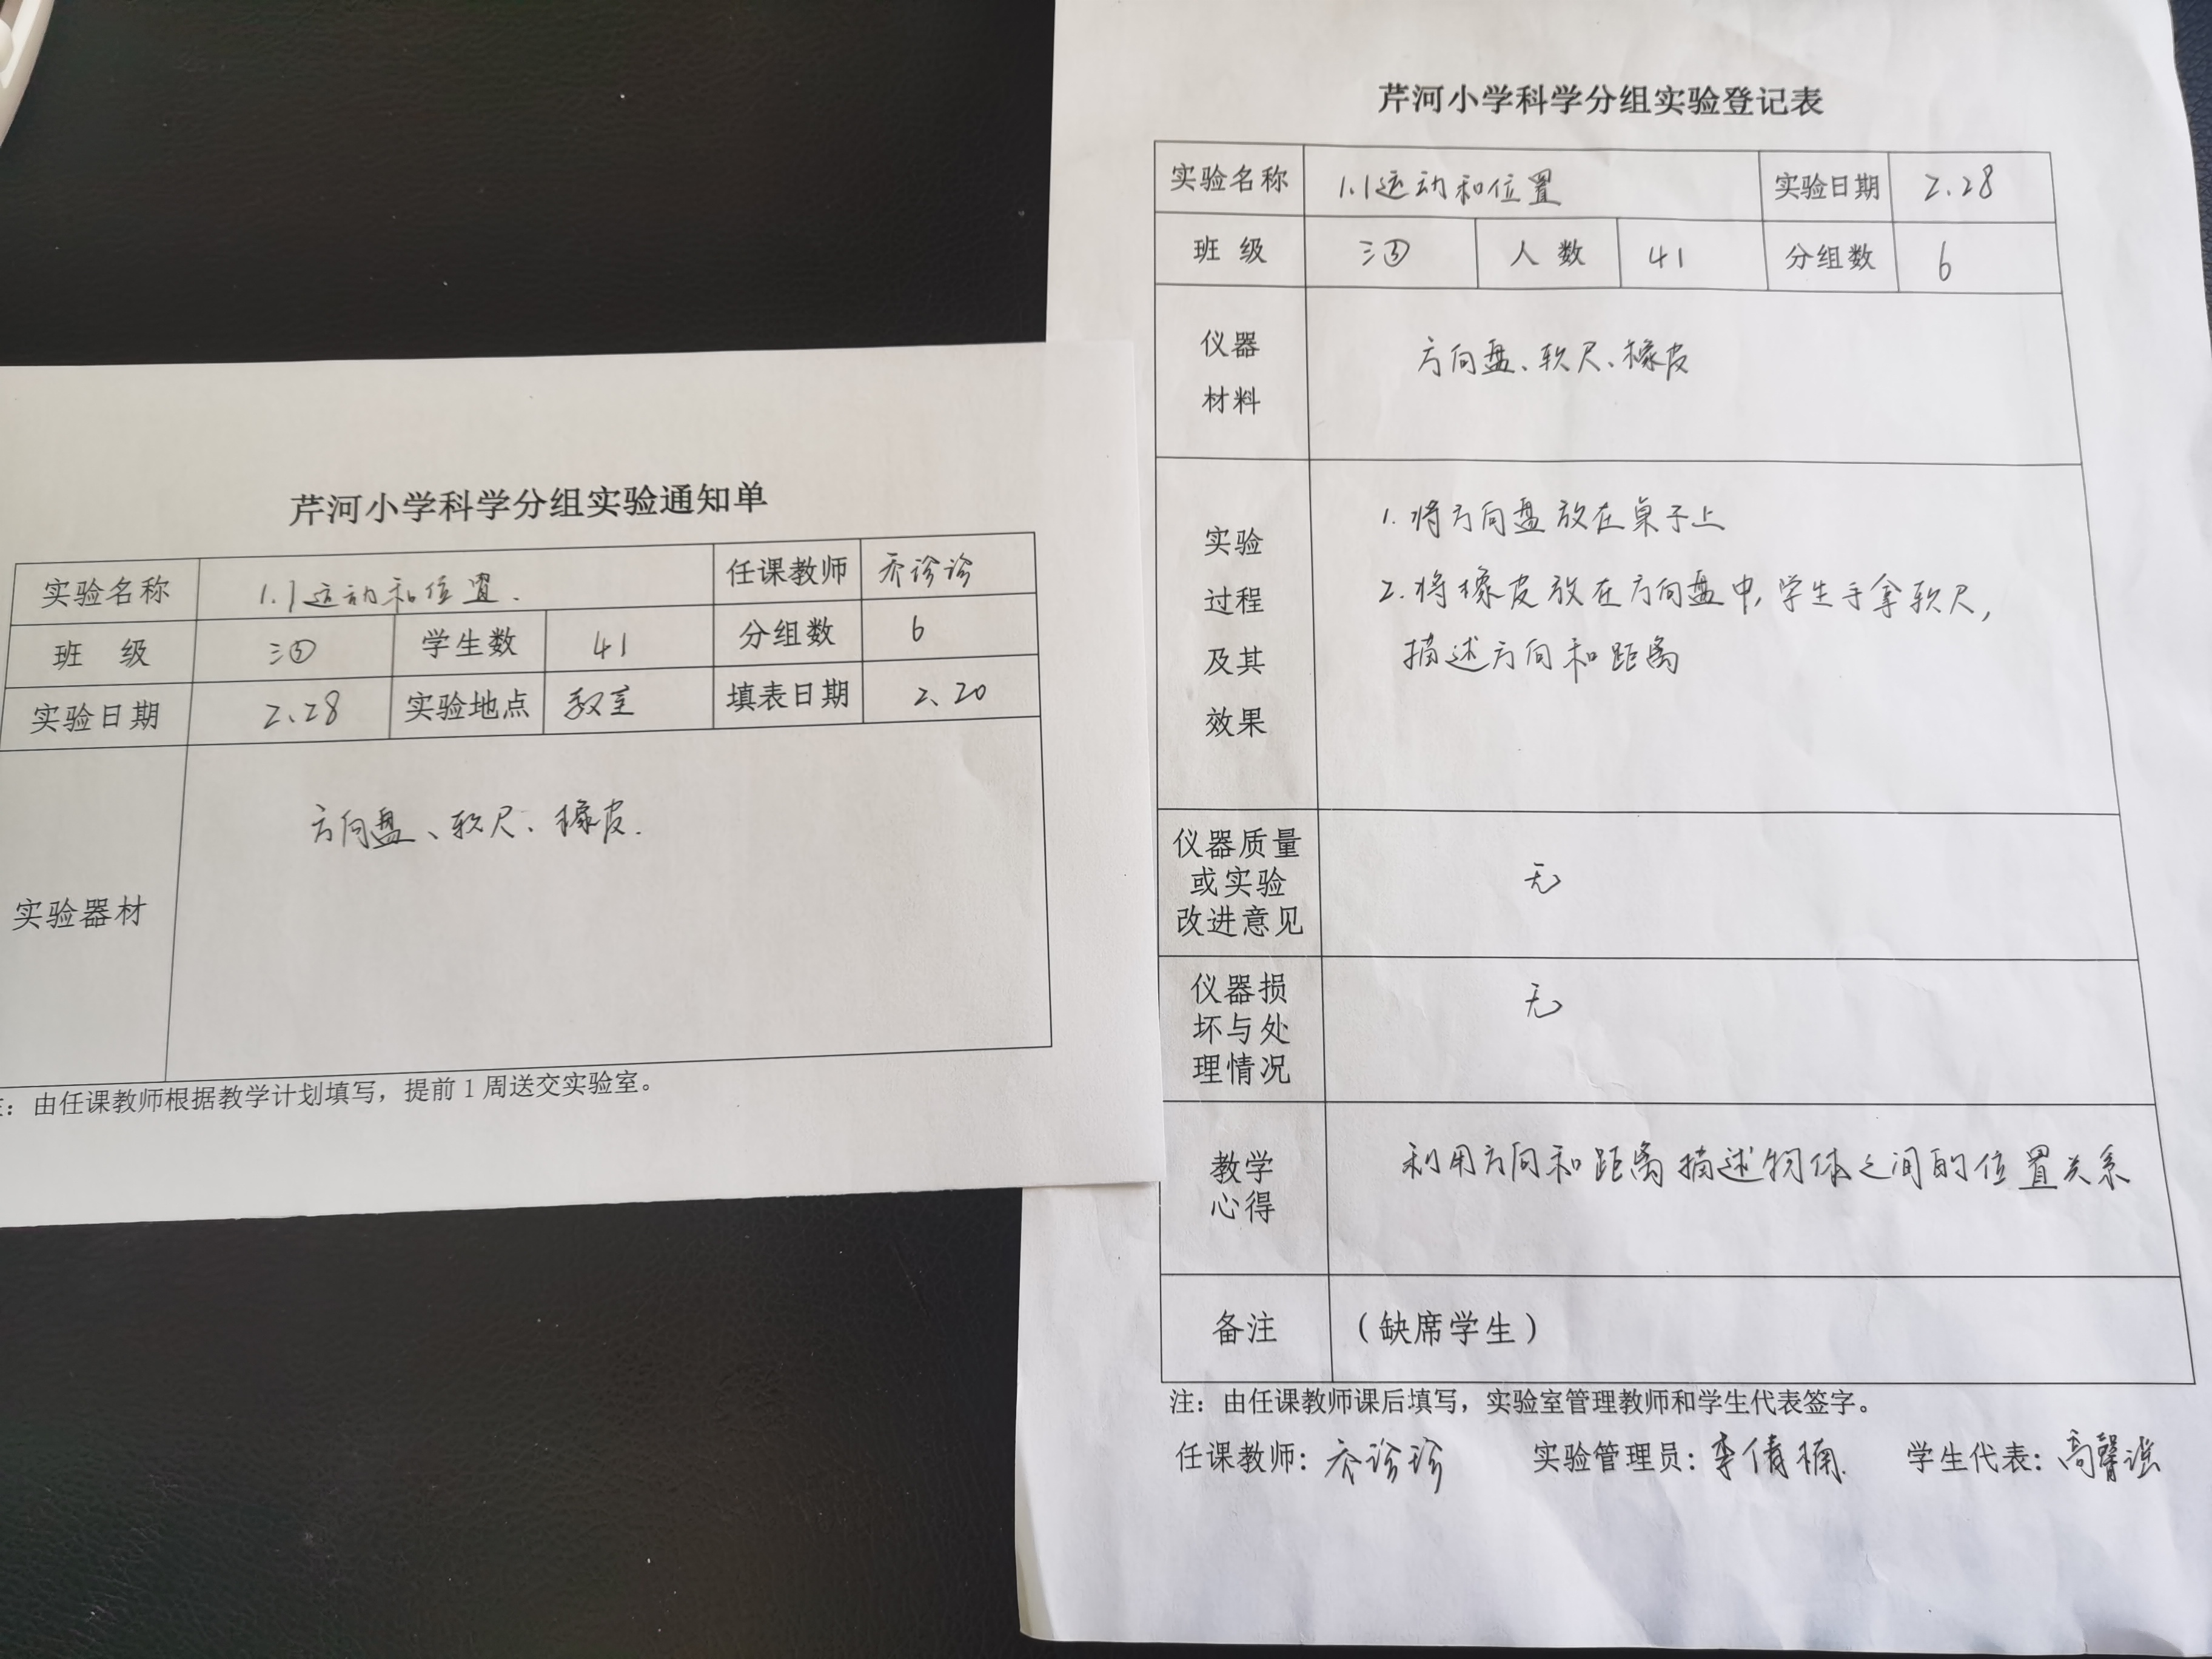 芹河小学科学分组实验通知单
实验名称 1.1运动和位置. 任课教师 乔诊诊
班 级 三⑤ 学生数 41 分组数 6
实验日期 2、28 实验地点 教室 填表日期 2、20
实验器材 方向盘、软尺、橡皮.
：由任课教师根据教学计划填写，提前1周送交实验室。
芹河小学科学分组实验登记表
实验名称 1.1运动和位置 实验日期 2、28
班 级 三⑤ 人 数 41 分组数 6
仪器
材料
方向盘、软尺、橡皮
实验
过程
及其
效果
1. 将方向盘放在桌子上
2. 将橡皮放在方向盘中, 学生手拿软尺,
描述方向和距离
仪器质量
或实验
改进意见
无
仪器损
坏与处
理情况
无
教学
心得
利用方向和距离描述物体之间的位置关系
备注 （缺席学生）
注：由任课教师课后填写，实验室管理教师和学生代表签字。
任课教师：乔诊诊 实验管理员：李倩楠. 学生代表：高馨